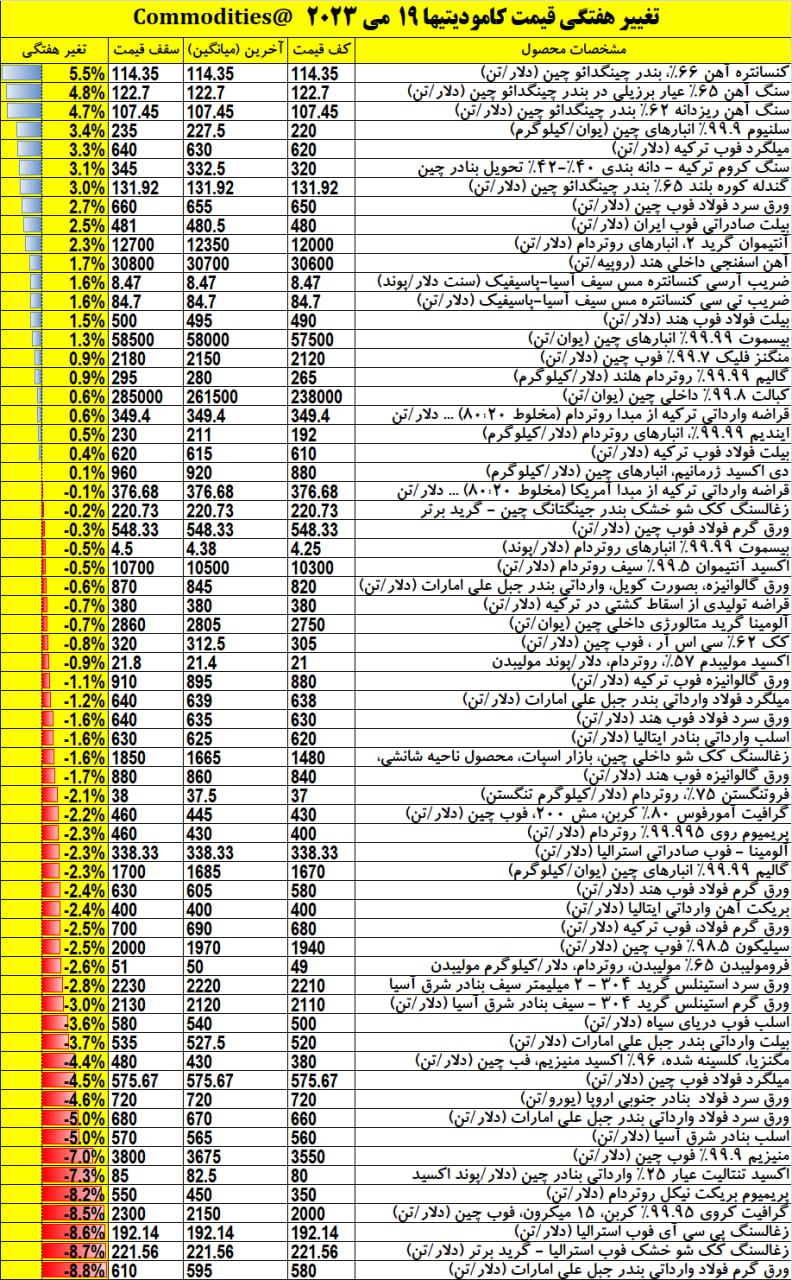 تغییر هفتگی قیمت کامودیتیها ۱۹ می ۲۰۲۳ @Commodities
مشخصات محصول کف قیمت آخرین (میانگین) سقف قیمت تغیر هفتگی
کنسانتره آهن ۶۶٪، بندر چینگدائو چین (دلار/تن) 114.35 114.35 114.35 5.5%
سنگ آهن ۶۵٪ عیار برزیلی در بندر چینگدائو چین (دلار/تن) 122.7 122.7 122.7 4.8%
سنگ آهن ریزدانه ۶۲٪ بندر چینگدائو چین (دلار/تن) 107.45 107.45 107.45 4.7%
سلنیوم ۹۹.۹٪ انبارهای چین (یوان/کیلوگرم) 220 227.5 235 3.4%
میلگرد فوب ترکیه (دلار/تن) 620 630 640 3.3%
سنگ کروم ترکیه - دانه بندی ۴۰٪-۴۲٪ تحویل بنادر چین 320 332.5 345 3.1%
گندله کوره بلند ۶۵٪ بندر چینگدائو چین (دلار/تن) 131.92 131.92 131.92 3.0%
ورق سرد فولاد فوب چین (دلار/تن) 650 655 660 2.7%
بیلت صادراتی فوب ایران (دلار/تن) 480 480.5 481 2.5%
آنتیموان گرید ۲، انبارهای روتردام (دلار/تن) 12000 12350 12700 2.3%
آهن اسفنجی داخلی هند (روپیه/تن) 30600 30700 30800 1.7%
ضریب آرسی کنسانتره مس سیف آسیا-پاسیفیک (سنت دلار/پوند) 8.47 8.47 8.47 1.6%
ضریب تی سی کنسانتره مس سیف آسیا-پاسیفیک (دلار/تن) 84.7 84.7 84.7 1.6%
بیلت فولاد فوب هند (دلار/تن) 490 495 500 1.5%
بیسموت ۹۹.۹۹٪ انبارهای چین (یوان/تن) 57500 58000 58500 1.3%
منگنز فلیک ۹۹.۷٪ فوب چین (دلار/تن) 2120 2150 2180 0.9%
گالیم ۹۹.۹۹٪ روتردام هلند (دلار/کیلوگرم) 265 280 295 0.9%
کبالت ۹۹.۸٪ داخلی چین (یوان/تن) 238000 261500 285000 0.6%
قراضه وارداتی ترکیه از مبدا روتردام (مخلوط ۸۰:۲۰) ... دلار/تن 349.4 349.4 349.4 0.6%
ایندیم ۹۹.۹۹٪، انبارهای روتردام (دلار/کیلوگرم) 192 211 230 0.5%
بیلت فولاد فوب ترکیه (دلار/تن) 610 615 620 0.4%
دی اکسید ژرمانیم، انبارهای چین (دلار/کیلوگرم) 880 920 960 0.1%
قراضه وارداتی ترکیه از مبدا آمریکا (مخلوط ۸۰:۲۰) ... دلار/تن 376.68 376.68 376.68 -0.1%
زغالسنگ کک شو خشک بندر جینگتانگ چین - گرید برتر 220.73 220.73 220.73 -0.2%
ورق گرم فولاد فوب چین (دلار/تن) 548.33 548.33 548.33 -0.3%
بیسموت ۹۹.۹۹٪ انبارهای روتردام (دلار/پوند) 4.25 4.38 4.5 -0.5%
اکسید آنتیموان ۹۹.۵٪ سیف روتردام (دلار/تن) 10300 10500 10700 -0.5%
ورق گالوانیزه، بصورت کویل، وارداتی بندر جبل علی امارات (دلار/تن) 820 845 870 -0.6%
قراضه تولیدی از اسقاط کشتی در ترکیه (دلار/تن) 380 380 380 -0.7%
آلومینا گرید متالورژی داخلی چین (یوان/تن) 2750 2805 2860 -0.7%
کک ۶۲٪ سی اس آر ، فوب چین (دلار/تن) 305 312.5 320 -0.8%
اکسید مولیبدم ۵۷٪، روتردام، دلار/پوند مولیبدن 21 21.4 21.8 -0.9%
ورق گالوانیزه فوب ترکیه (دلار/تن) 880 895 910 -1.1%
میلگرد فولاد وارداتی بندر جبل علی امارات (دلار/تن) 638 639 640 -1.2%
ورق سرد فولاد فوب هند (دلار/تن) 630 635 640 -1.6%
اسلب وارداتی بنادر ایتالیا (دلار/تن) 620 625 630 -1.6%
زغالسنگ کک شو داخلی چین، بازار اسپات، محصول ناحیه شانشی، 1480 1665 1850 -1.6%
ورق گالوانیزه فوب هند (دلار/تن) 840 860 880 -1.7%
فروتنگستن ۷۵٪، روتردام (دلار/کیلوگرم تنگستن) 37 37.5 38 -2.1%
گرافیت آمورفوس ۸۰٪ کربن، مش ۲۰۰، فوب چین (دلار/تن) 430 445 460 -2.2%
پریمیوم روی ۹۹.۹۹۵٪ روتردام (دلار/تن) 400 430 460 -2.3%
آلومینا - فوب صادراتی استرالیا (دلار/تن) 338.33 338.33 338.33 -2.3%
گالیم ۹۹.۹۹٪ انبارهای چین (یوان/کیلوگرم) 1670 1685 1700 -2.3%
ورق گرم فولاد فوب هند (دلار/تن) 580 605 630 -2.4%
بریکت آهن وارداتی ایتالیا (دلار/تن) 400 400 400 -2.4%
ورق گرم فولاد، فوب ترکیه (دلار/تن) 680 690 700 -2.5%
سیلیکون ۹۸.۵٪ فوب چین (دلار/تن) 1940 1970 2000 -2.5%
فرومولیبدن ۶۵٪ مولیبدن، روتردام، دلار/کیلوگرم مولیبدن 49 50 51 -2.6%
ورق سرد استینلس گرید ۳۰۴ - ۲ میلیمتر سیف بنادر شرق آسیا 2210 2220 2230 -2.8%
ورق گرم استینلس گرید ۳۰۴ - سیف بنادر شرق آسیا (دلار/تن) 2110 2120 2130 -3.0%
اسلب فوب دریای سیاه (دلار/تن) 500 540 580 -3.6%
بیلت وارداتی بندر جبل علی امارات (دلار/تن) 520 527.5 535 -3.7%
مگنزیا، کلسینه شده، ۹۶٪ اکسید منیزیم، فب چین (دلار/تن) 380 430 480 -4.4%
میلگرد فولاد فوب چین (دلار/تن) 575.67 575.67 575.67 -4.5%
ورق سرد فولاد بنادر جنوبی اروپا (یورو/تن) 720 720 720 -4.6%
ورق سرد فولاد وارداتی بندر جبل علی امارات (دلار/تن) 660 670 680 -5.0%
اسلب بنادر شرق آسیا (دلار/تن) 560 565 570 -5.0%
منیزیم ۹۹.۹٪ فوب چین (دلار/تن) 3550 3675 3800 -7.0%
اکسید تنتالیت عیار ۲۵٪ وارداتی بنادر چین (دلار/پوند اکسید 80 82.5 85 -7.3%
پریمیوم بریکت نیکل روتردام (دلار/تن) 350 450 550 -8.2%
گرافیت کروی ۹۹.۹۵٪ کربن، ۱۵ میکرون، فوب چین (دلار/تن) 2000 2150 2300 -8.5%
زغالسنگ پی سی آی فوب استرالیا (دلار/تن) 192.14 192.14 192.14 -8.6%
زغالسنگ کک شو خشک فوب استرالیا - گرید برتر (دلار/تن) 221.56 221.56 221.56 -8.7%
ورق گرم فولاد وارداتی بندر جبل علی امارات (دلار/تن) 580 595 610 -8.8%